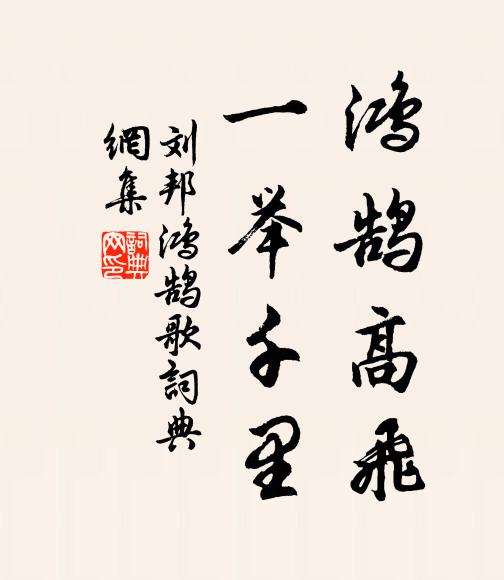 鸿鹄高飛
一举千里
刘邦鸿鹄歌詞典
網集
詞典
网印